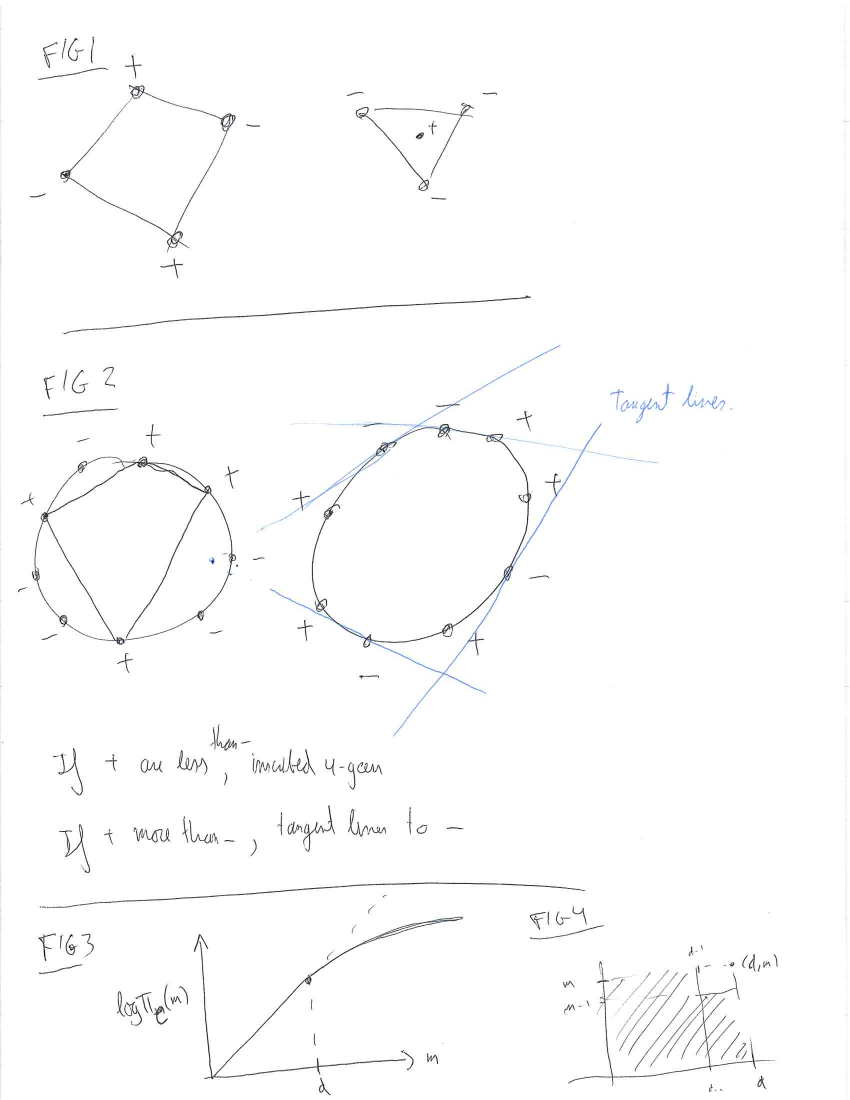 FIG1
+
-
-
+
-
-
+
-
FIG 2
Tangent lines.
-
+
+
+
-
-
-
-
+
-
-
+
+
+
-
+
-
+
If + are less than -, inscribed 4-gon
If + more than -, tangent lines to -
FIG3
log Π_C(m)
m
d
FIG4
d-1
(d,m)
m
m-1
d